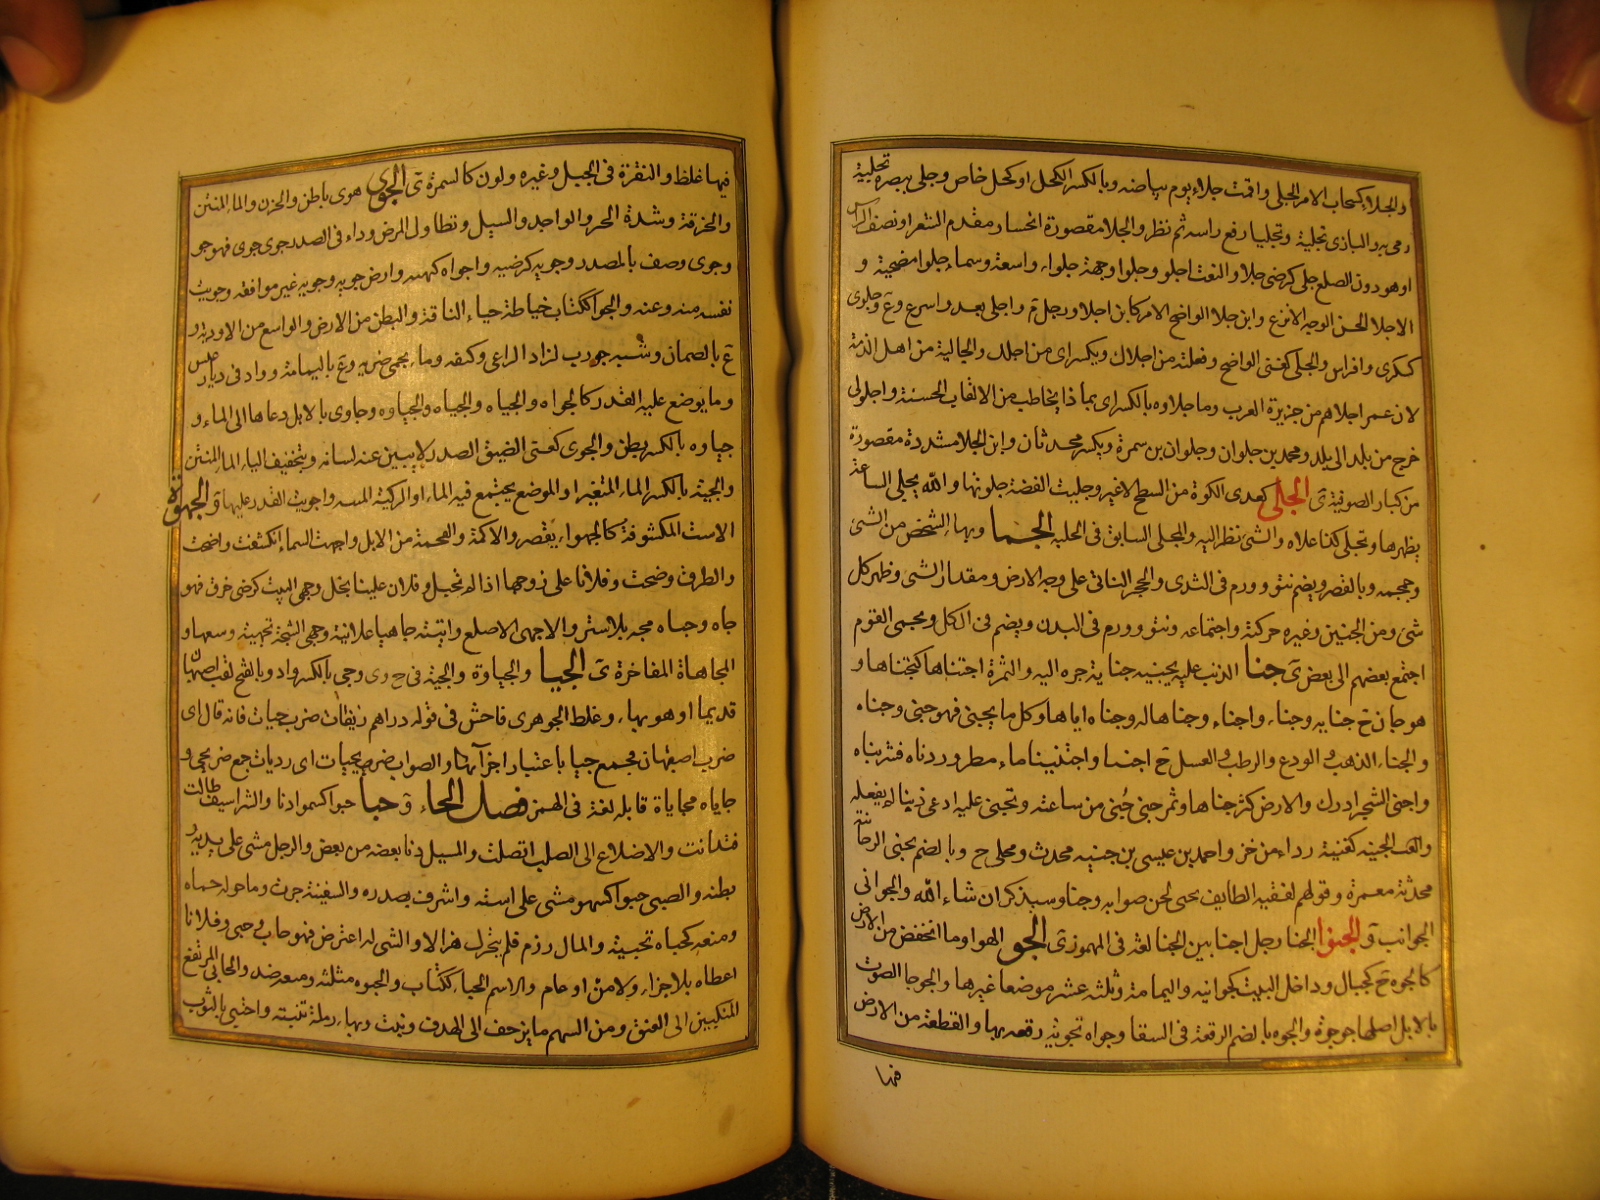 والجلاء كسحاب الامر الجلى واقمت جلاء يوم بياضه وبالكسر الكحل او كحل خاص وجلى ببصره تجلية
رمى به والبازى تجلية وتجليا رفع راسه ثم نظر والجلا مقصورة انحسار مقدم الشعر او نصف الراس
او هو دون الصلع جلى كرضى جلا والنعت اجلو وجلوا وجهة جلواء واسعة وسماء جلوا مضحية و
الاجلا الحسن الوجه الانزع وابن جلا الواضح الامر كابن اجلا ورجل م واجلى يعدو اسرع وع وجلوى
كسكرى وافراس والجلى كغنى الواضح وفعلته من اجلاك ويكسر اى من اجلك والجالية من اهل الذمة
لان عمر اجلاهم من جزيرة العرب وما جلاوه بالكسر اى بماذا يخاطب من الالقاب الحسنة واجلولى
خرج من بلد الى بلد ومحمد بن جلوان وجلوان بن سمرة ويكسر محدثان وابن الجلا مشددة مقصورة
من كبار الصوفية ى الجلى كهدى الكوة من السطح لا غير وجليت الفضة جلوتها والله يجلى الساعة
يظهرها وتجلى كذا علاه والشئ نظر اليه والمجلى السابق فى الحلبه الجما وبهاء الشخص من الشئ
وحجمه وبالقصر ويضم نتو وورم فى الثدى والحجر الناتى على وجه الارض ومقدار الشئ وظهر كل
شئ ومن الجنين وغيره حركته واجتماعه ونتو وورم فى البدن ويضم فى الكل وتجمى القوم
اجتمع بعضهم الى بعض ى جنا الذنب عليه يجنيه جناية جره اليه والثمرة اجتناها كتجناها و
هو جان ج جناة وجناء واجناء وجناها له وجناه اياها وكل ما يجنى فهو جنى وجناه
والجناء الذهب والودع والرطب والعسل ج اجناا واجتنينا ماء مطر وردناه فشربناه
واجنى الشجر ادرك والارض كثر جناها وثمر جنى جُنى من ساعته وتجنى عليه ادعى ذنبا لم يفعله
والجنيه كغنية رداء من خز واحمد بن عيسى بن جنيه محدث ومحلى ح وبالضم يجنى الرحانة
محدثة معمرة وقولهم لعقبه الطايف يحنى لحن صوابه وجنا وسيذكر ان شاء الله والجوانى
الجوانب و الجنوا الجنا رجل اجنا بين الجنا لغة فى المهموز ى الجو الهوا وما انخفض من الارض
كالجوه ج كجبال وداخل البيت كجوانيه واليمامة وثلثه عشر موضعا غيرها والجوجا الصوت
بالابل اصلها جوجوة والجوه بالضم الرقعة فى السقا وجواه تجويه رقعه بها والقطعة من الارض
فيها
فيها غلظ والنقرة فى الجبل وغيره ولون كالسمرة ى الجوى هوى باطن والحزن والماء المنتن
والحرقة وشدة الوجد والسل وتطاول المرض وداء فى الصدر جوى جوى فهو جو
وجوى وصف بالمصدر وجويه كرضيه واجواه كرهه وارض جويه وجويه غير موافقه وجويت
نفسه منه وعنه والجوا ككتاب خياطة حياء الناقة والبطن من الارض والواسع من الاودية و
ع بالصمان وشبه جورب لزاد الراعى وكنفه وماء بحمى ضريه وع باليمامة وواد فى ديار عبس
وما يوضع عليه القدر كالجواه والجياه والجياه والجياوه وجاوى بالابل دعاها الى الماء و
جياوه بالكسر بطن والجوى كغنى الضيق الصدر لا يبين عنه لسانه وبتخفيف الياء الماء المنتن
والجية بالكسر الماء المتغير او الموضع يجتمع فيه الماء او الركية المنتنه واجويت القدر علقتها و الجهوة
الاست المكشوفة كالجهوا ويقصر والاكمة والقحمة من الابل واجهت السماء انكشفت واضحت
والطرق وضحت وفلانا على زوجها اذا لم تحبل وفلان علينا بخل وجهى البيت كرضى خرق فهو
جاه وخباء مجه بلا ستر والاجهى الاصلع واتيته جاهيا علانية وجهى الشجة تجهية وسعها و
المجاهاة المفاخرة ى الجيا والجياوة والجية فى ج وى وجى بالكسر واد وبالفتح لقب اصبهان
قديما او هو بهاء وغلط الجوهرى فاحش فى قوله دراهم زيفات ضرب جيات فانه قال اى
ضرب اصفهان فجمع جيا باعتبار اجزائها والصواب ضربجيات اى رديات جمع ضربجى و
جاياه مجاياة قابله لغة فى الهمز فصل الحاء و حبا حبوا كسموا دنا والشراسيف طالت
فتدانت والاضلاع الى الصلب اتصلت والمسيل دنا بعضه من بعض والرجل مشى على يديه و
بطنه والصبى حبوا كسهو مشى على استه واشرف بصدره والسفينة جرت وما حوله حماه
ومنعه كحباه تحبية والمال رزم فلم يتحرك هزالا والشئ له اعترض فهو حاب وحبى وفلانا
اعطاه بلا جزاء ولا من او عام والاسم الحباء ككتاب والحبوه مثلثه ومنعه ضد والحابى المرتفع
المنكبين الى العنق ومن السهم ما يزحف الى الهدف ونبت وبهاء رملة تنبته واحتبى بالثوب